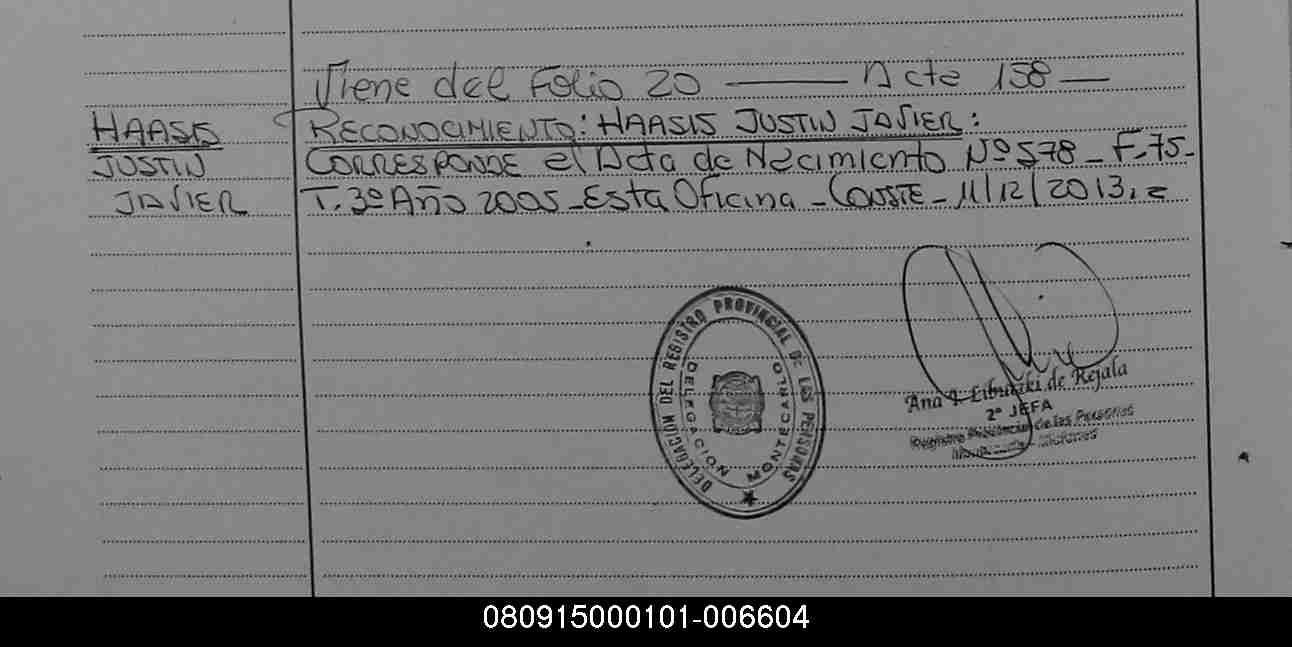 Viene del Folio 20 — Acta 158 —
HAASIS
JUSTIN
JAVIER
RECONOCIMIENTO: HAASIS JUSTIN JAVIER:
CORRESPONDE el Acta de Nacimiento Nº 578 - F. 75 -
T. 3º Año 2005 - Esta Oficina - CONSTE - 11/12/2013.
DELEGACION DEL REGISTRO PROVINCIAL DE LAS PERSONAS
DELEGACION MONTECARLO
Ana de Rejala
2º JEFA
Registro Provincial de las Personas
Misiones
080915000101-006604